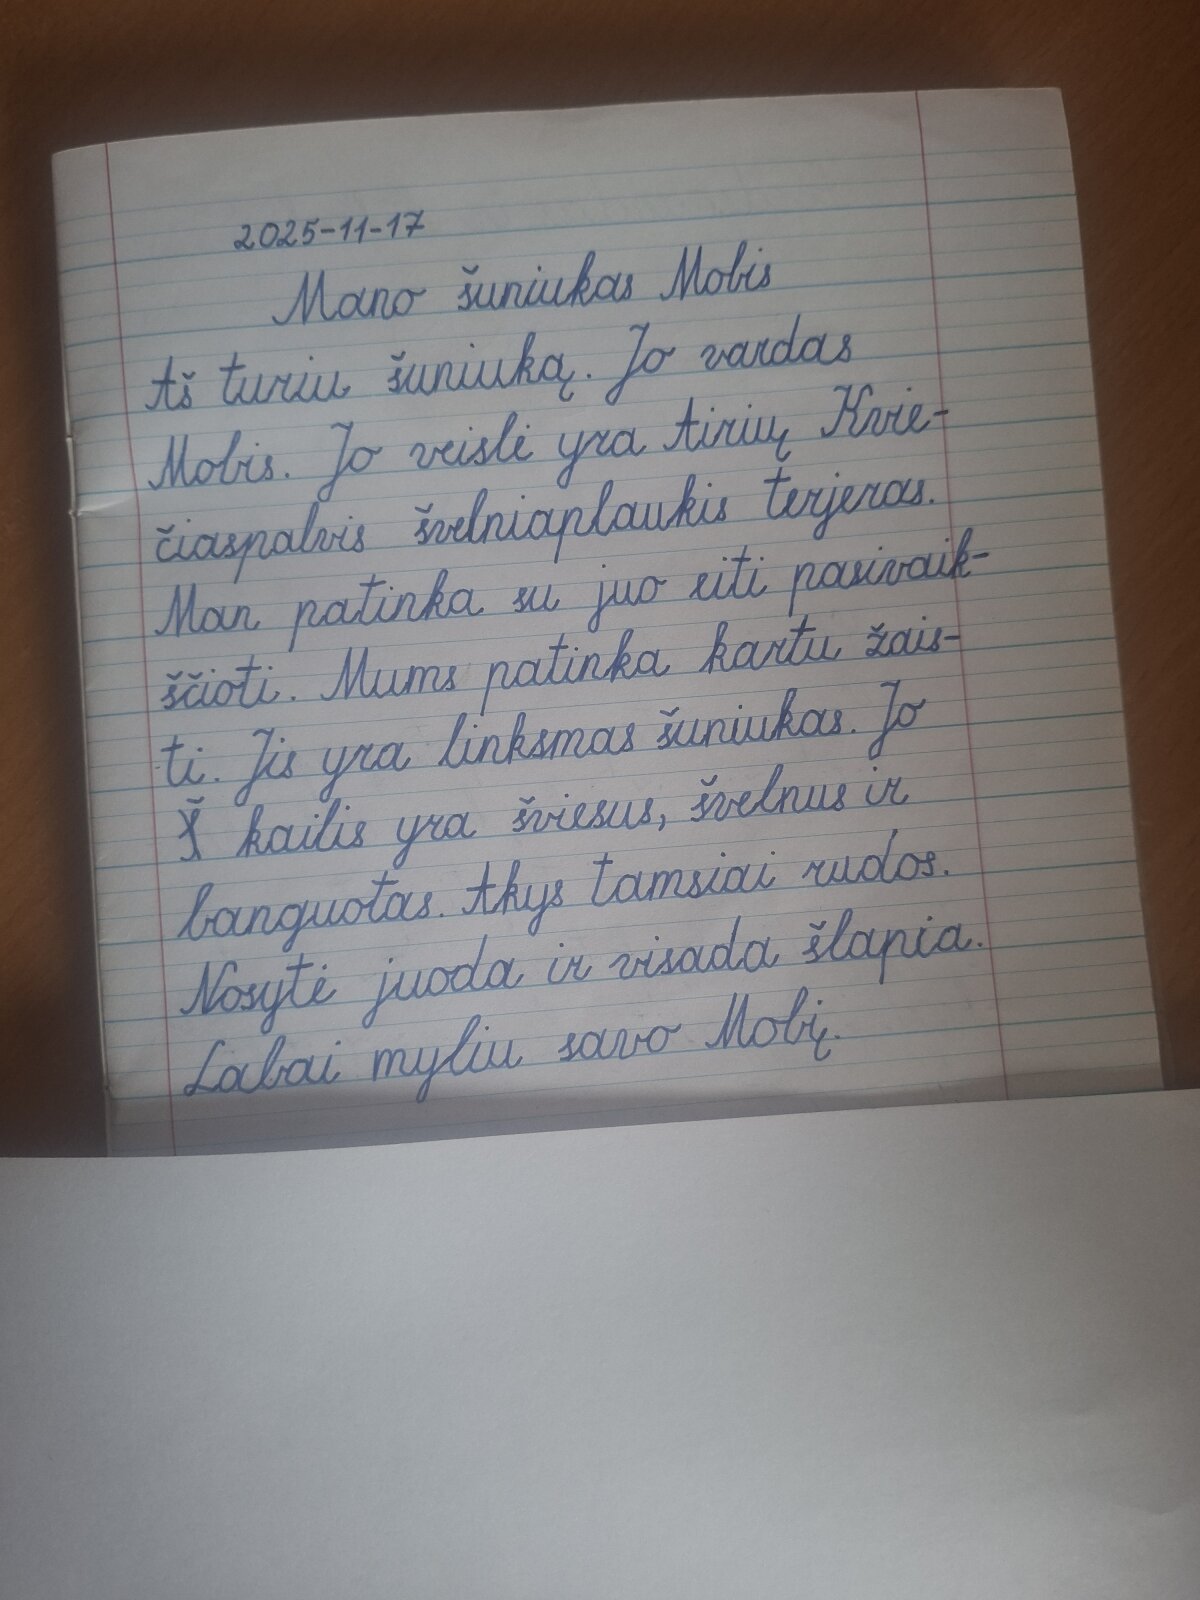 2025-11-17
Mano šuniukas Mobis
Aš turiu šuniuką. Jo vardas
Mobis. Jo veislė yra Airių Kvie-
čiaspalvis švelniaplaukis terjeras.
Man patinka su juo eiti pasivaik-
ščioti. Mums patinka kartu žais-
ti. Jis yra linksmas šuniukas. Jo
kailis yra šviesus, švelnus ir
banguotas. Akys tamsiai rudos.
Nosytė juoda ir visada šlapia.
Labai myliu savo Mobį.